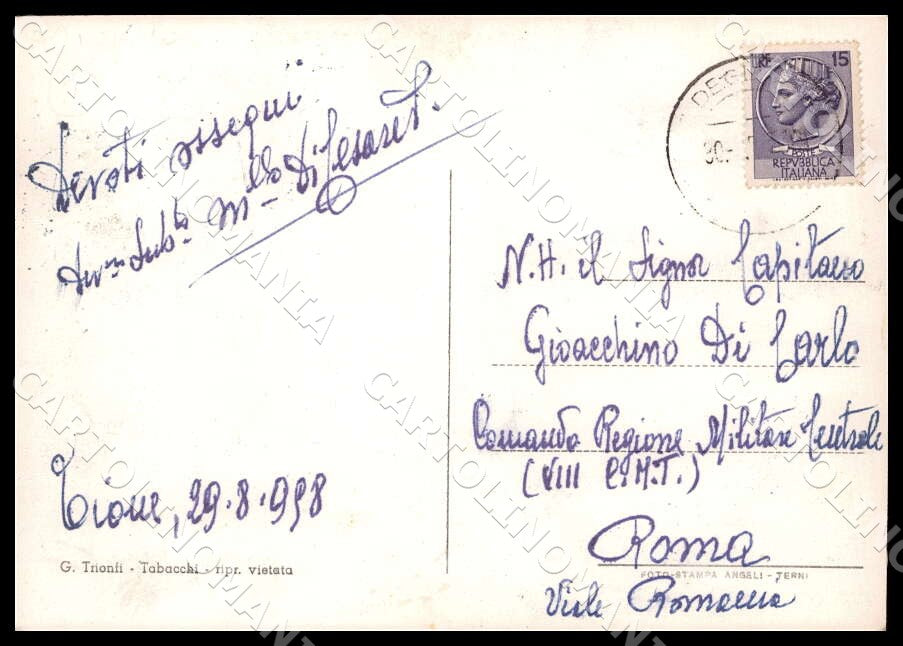 Devoti ossequi
M.llo Di Cesare D.
Tione, 29.8.958
G. Trionfi - Tabacchi - ripr. vietata
LIRE 15
POSTE
REPVBBLICA
ITALIANA
DEGLI
30-
N.H. il Signor Capitano
Gioacchino Di Carlo
Comando Regione Militare Centrale
(VIII C.M.T.)
Roma
FOTO-STAMPA ANGELI - TERNI
Viale Romania
CARTOLINOMANIA